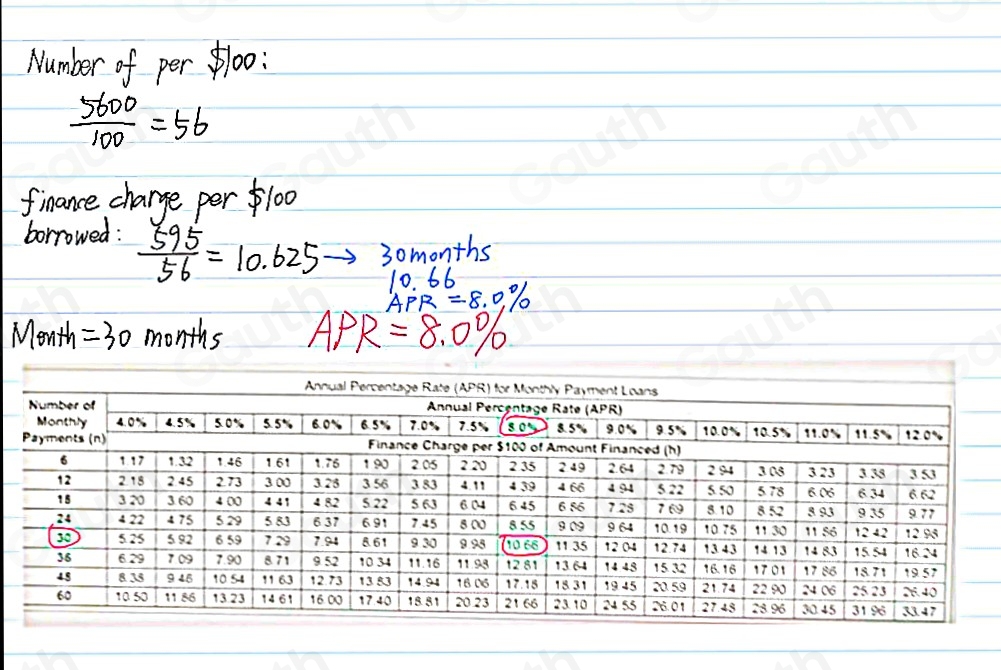 Number of per $100:
5600
100
= 56
finance charge per $100
borrowed: 595
56
= 10.625 → 30 months
10.66
APR = 8.0%
Month = 30 months APR = 8.0%
Annual Percentage Rate (APR) for Monthly Payment Loans
Number of Monthly Payments (n)
Annual Percentage Rate (APR)
4.0% 4.5% 5.0% 5.5% 6.0% 6.5% 7.0% 7.5% 8.0% 8.5% 9.0% 9.5% 10.0% 10.5% 11.0% 11.5% 12.0%
Finance Charge per $100 of Amount Financed (h)
6 1.17 1.32 1.46 1.61 1.76 1.90 2.05 2.20 2.35 2.49 2.64 2.79 2.94 3.08 3.23 3.38 3.53
12 2.18 2.45 2.73 3.00 3.28 3.56 3.83 4.11 4.39 4.66 4.94 5.22 5.50 5.78 6.06 6.34 6.62
18 3.20 3.60 4.00 4.41 4.82 5.22 5.63 6.04 6.45 6.86 7.28 7.69 8.10 8.52 8.93 9.35 9.77
24 4.22 4.75 5.29 5.83 6.37 6.91 7.45 8.00 8.55 9.09 9.64 10.19 10.75 11.30 11.86 12.42 12.98
30 5.25 5.92 6.59 7.29 7.94 8.61 9.30 9.98 10.66 11.35 12.04 12.74 13.43 14.13 14.83 15.54 16.24
36 6.29 7.09 7.90 8.71 9.52 10.34 11.16 11.98 12.81 13.64 14.48 15.32 16.16 17.01 17.86 18.71 19.57
48 8.38 9.46 10.54 11.63 12.73 13.83 14.94 16.06 17.18 18.31 19.45 20.59 21.74 22.90 24.06 25.23 26.40
60 10.50 11.86 13.23 14.61 16.00 17.40 18.81 20.23 21.66 23.10 24.55 26.01 27.48 28.96 30.45 31.96 33.47